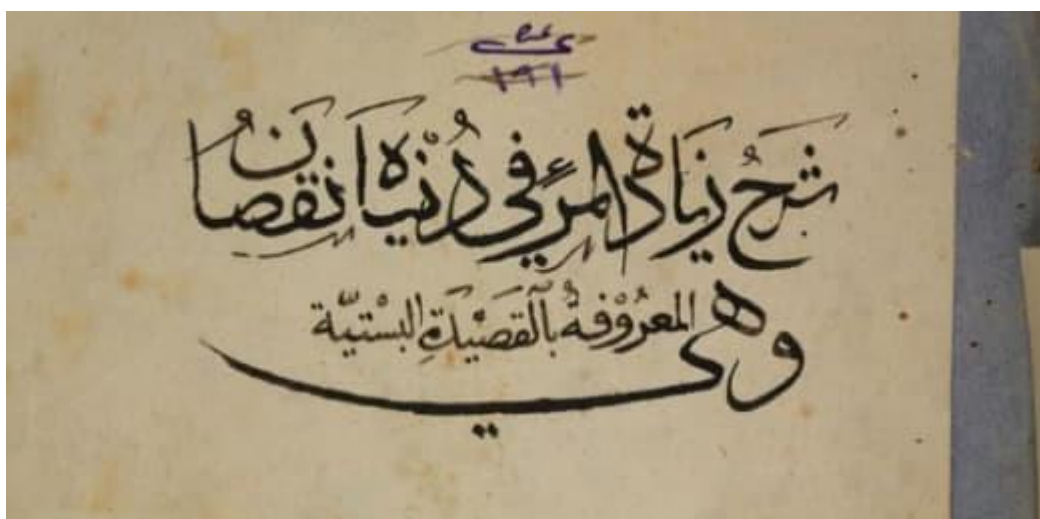 ١٩١
شرح زيادة المرئ في دنياه نقصان
وهي المعروفة بالقصيدة البستية